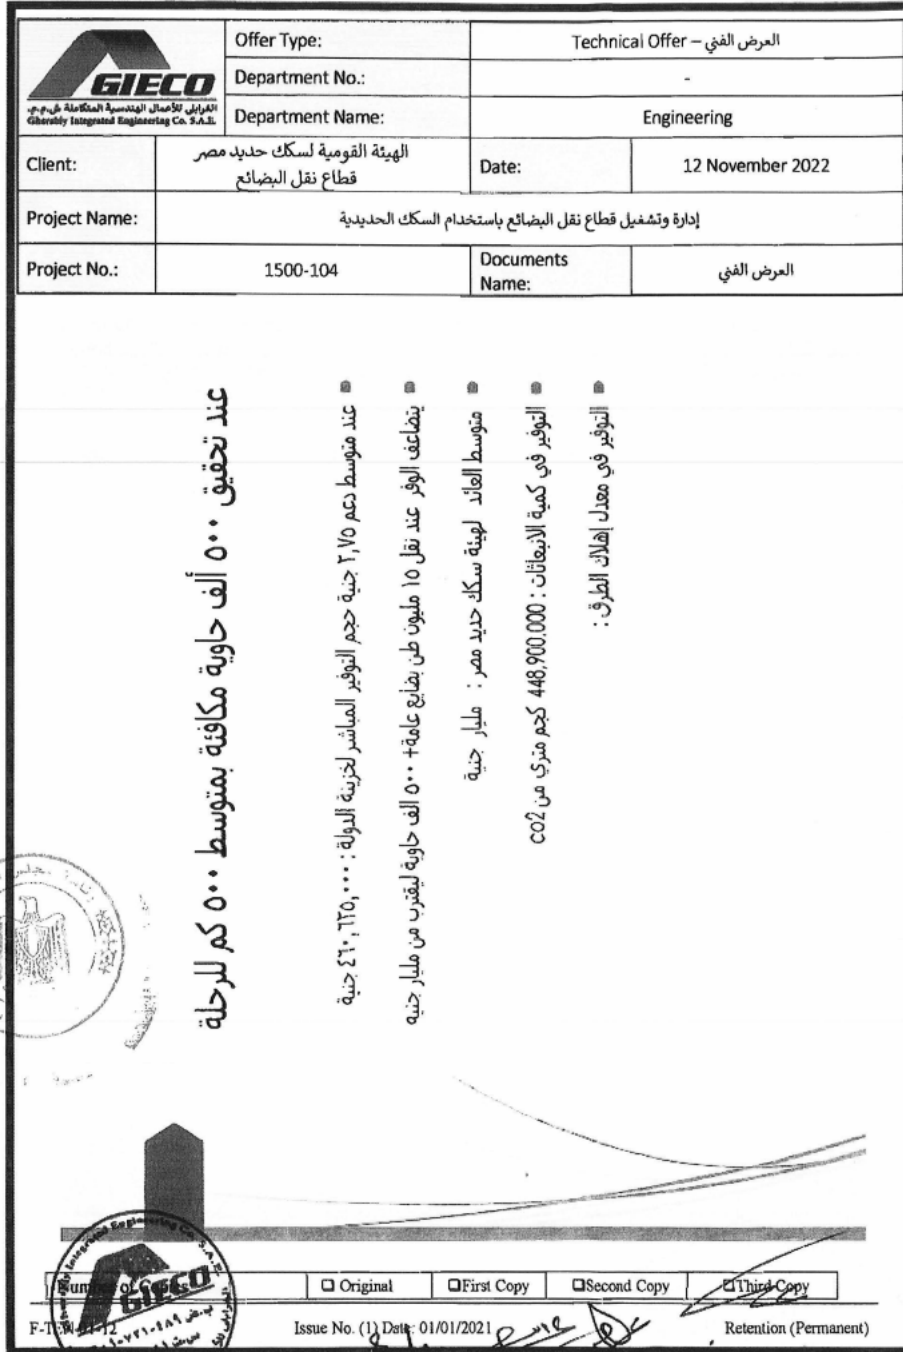 GIECO
الغرابلي للأعمال الهندسية المتكاملة ش.م.م.
Gharably Integrated Engineering Co. S.A.E.
Offer Type: Technical Offer – العرض الفني
Department No.: -
Department Name: Engineering
Client: الهيئة القومية لسكك حديد مصر
قطاع نقل البضائع
Date: 12 November 2022
Project Name: إدارة وتشغيل قطاع نقل البضائع باستخدام السكك الحديدية
Project No.: 1500-104
Documents Name: العرض الفني
عند تحقيق ٥٠٠ ألف حاوية مكافئة بمتوسط ٥٠٠ كم للرحلة
عند متوسط دعم ٢,٧٥ جنية حجم التوفير المباشر لخزينة الدولة : ٤٦٠,٦٢٥,٠٠٠ جنية
يتضاعف الوفر عند نقل ١٥ مليون طن بضايع عامة+ ٥٠٠ الف حاوية ليقترب من مليار جنيه
متوسط العائد لهيئة سكك حديد مصر : مليار جنية
التوفير في كمية الانبعاثات : 448,900.000 كجم متري من co2
التوفير في معدل إهلاك الطرق :
Number of Copies
☐ Original
☐ First Copy
☐ Second Copy
☐ Third Copy
Issue No. (1) Date: 01/01/2021
Retention (Permanent)